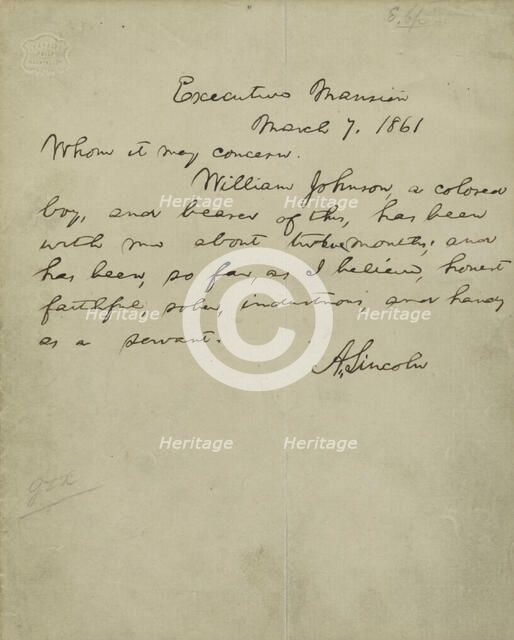 Executive Mansion
March 7, 1861
Whom it may concern.
William Johnson, a colored
boy, and bearer of this, has been
with me about twelve months; and
has been, so far, as I believe, honest
faithful, sober, industrious, and handy
as a servant.
A. Lincoln
Heritage Heritage
Heritage Heritage
Heritage Heritage
©